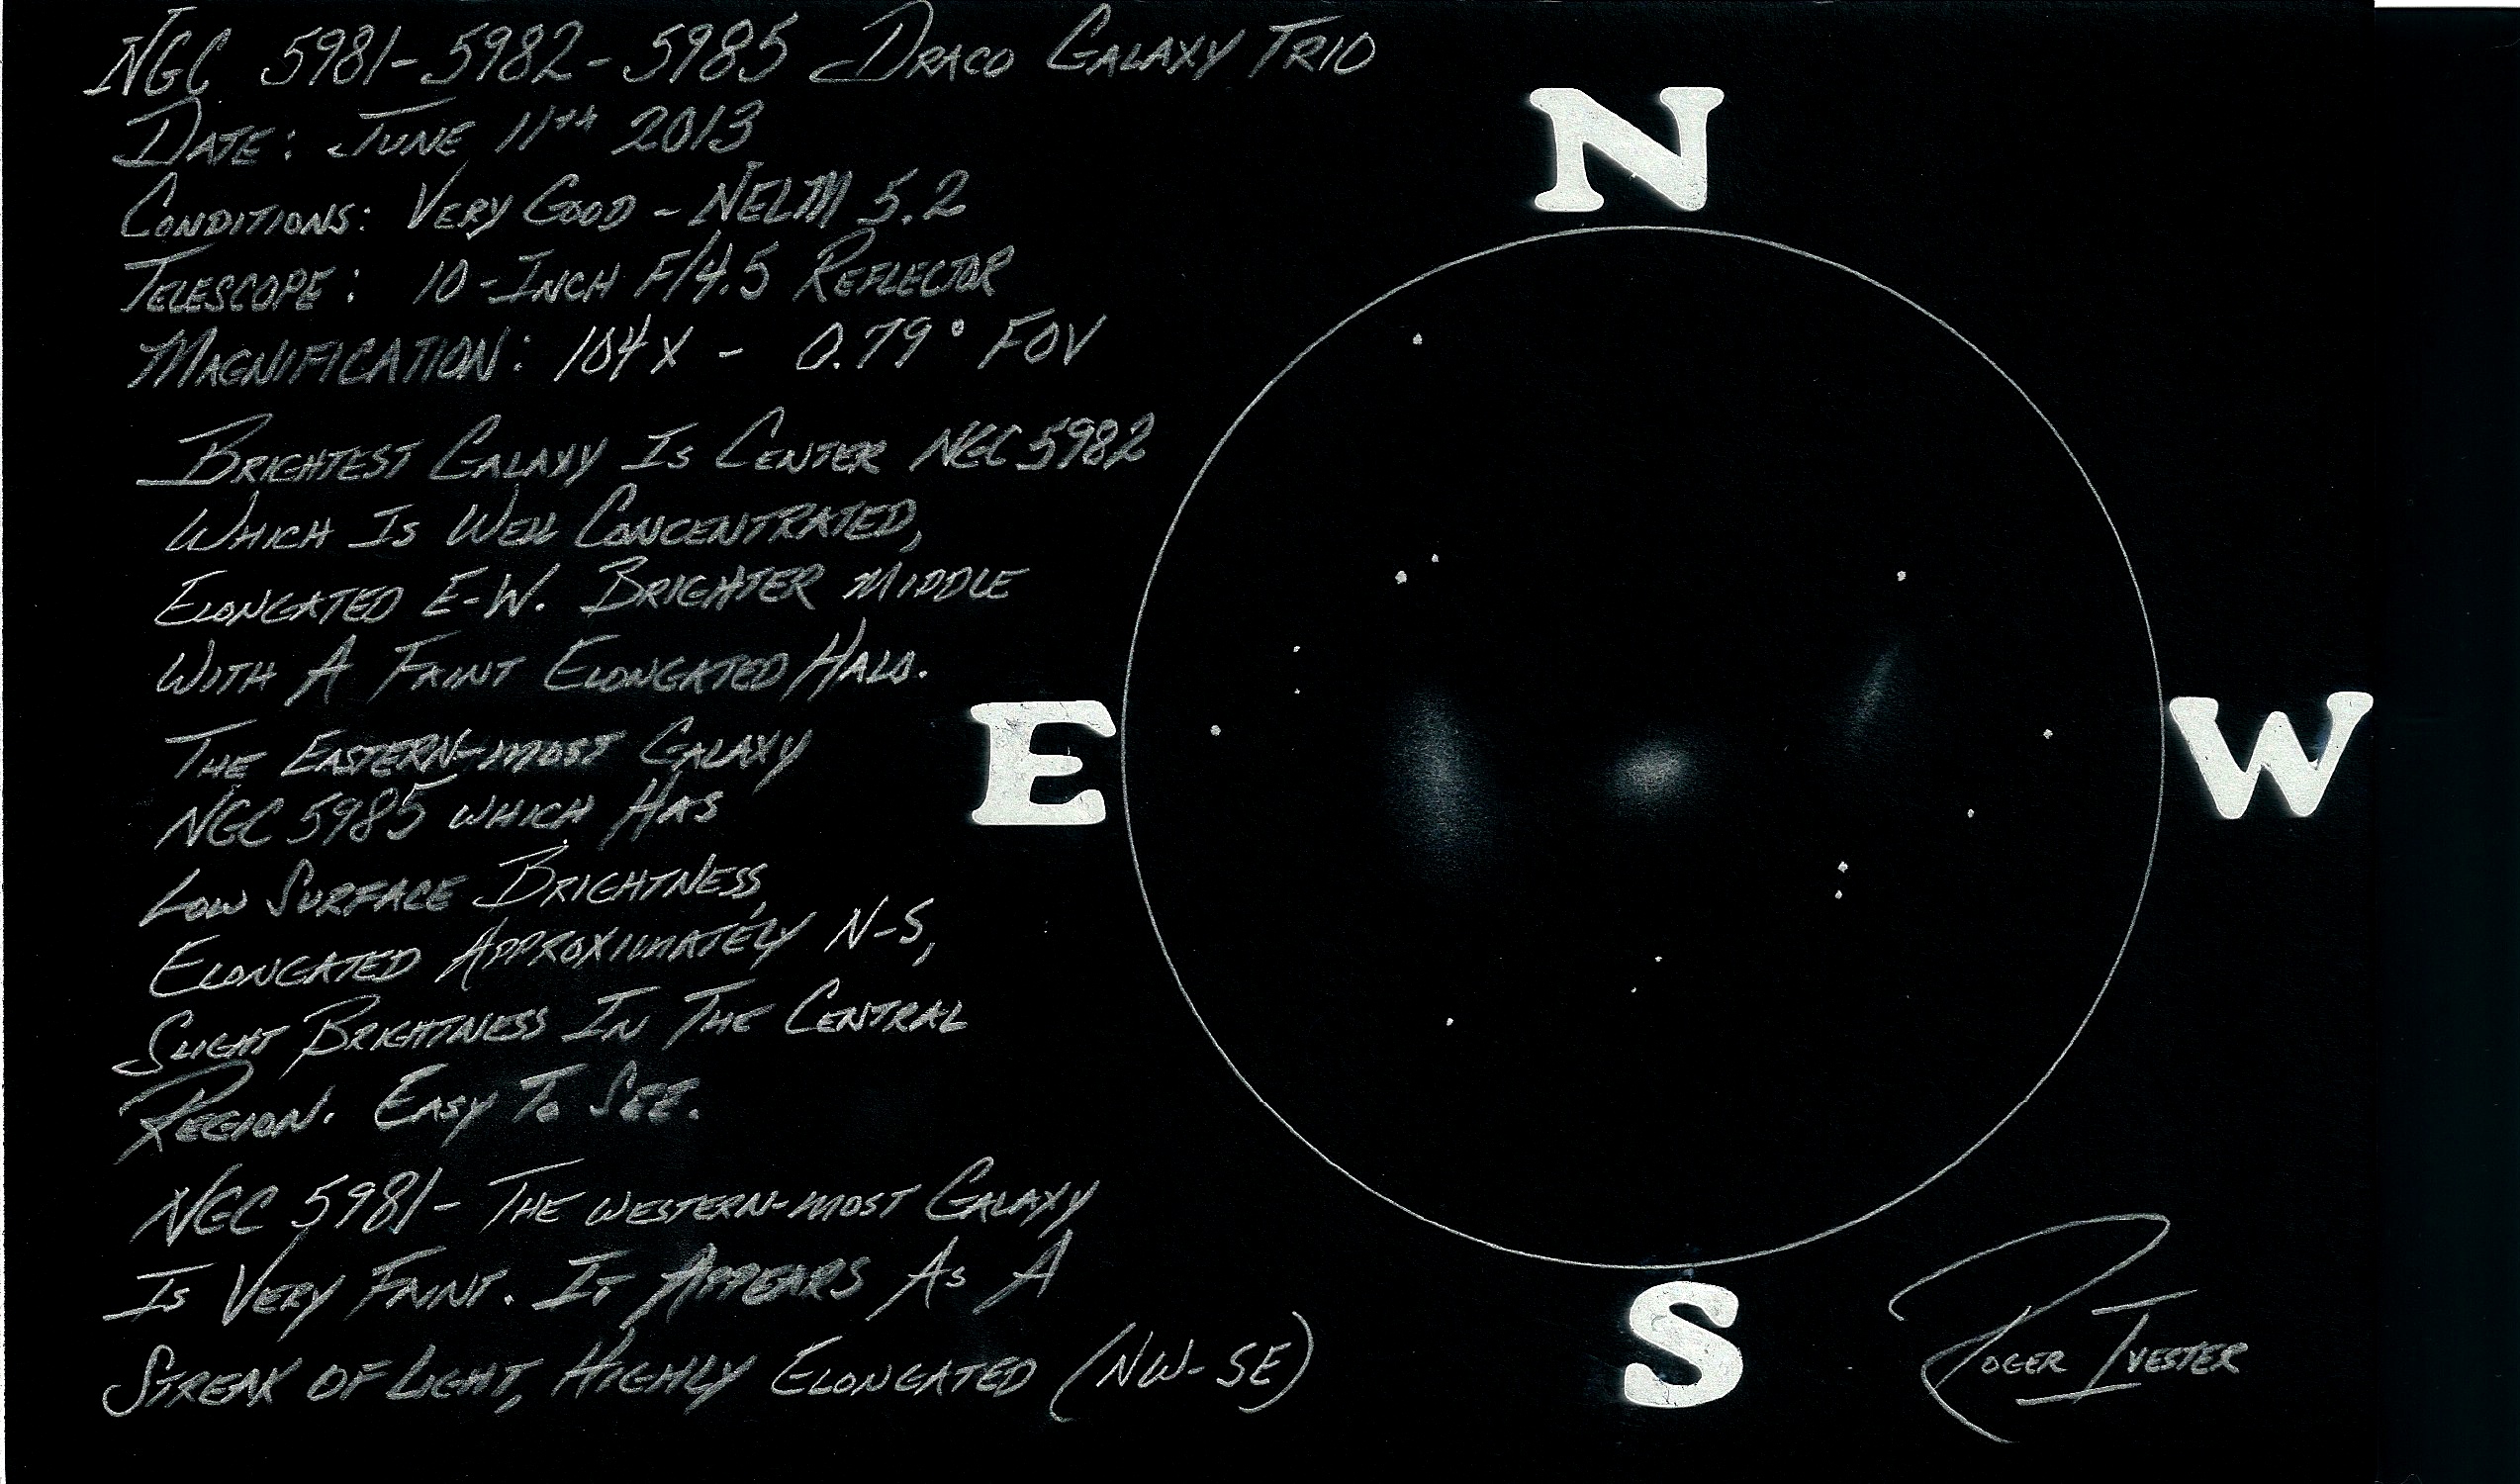 NGC 5981-5982-5985 DRACO GALAXY TRIO
DATE: JUNE 11TH 2013
CONDITIONS: VERY GOOD - NELM 5.2
TELESCOPE: 10-INCH F/4.5 REFLECTOR
MAGNIFICATION: 104X - 0.79° FOV
BRIGHTEST GALAXY IS CENTER NGC 5982
WHICH IS WELL CONCENTRATED,
ELONGATED E-W. BRIGHTER MIDDLE
WITH A FAINT ELONGATED HALO.
THE EASTERN-MOST GALAXY
NGC 5985 WHICH HAS
LOW SURFACE BRIGHTNESS,
ELONGATED APPROXIMATELY N-S,
SLIGHT BRIGHTNESS IN THE CENTRAL
REGION. EASY TO SEE.
NGC 5981- THE WESTERN-MOST GALAXY
IS VERY FAINT. IT APPEARS AS A
STREAK OF LIGHT, HIGHLY ELONGATED (NW-SE)
N
E
W
S
ROGER IVESTER